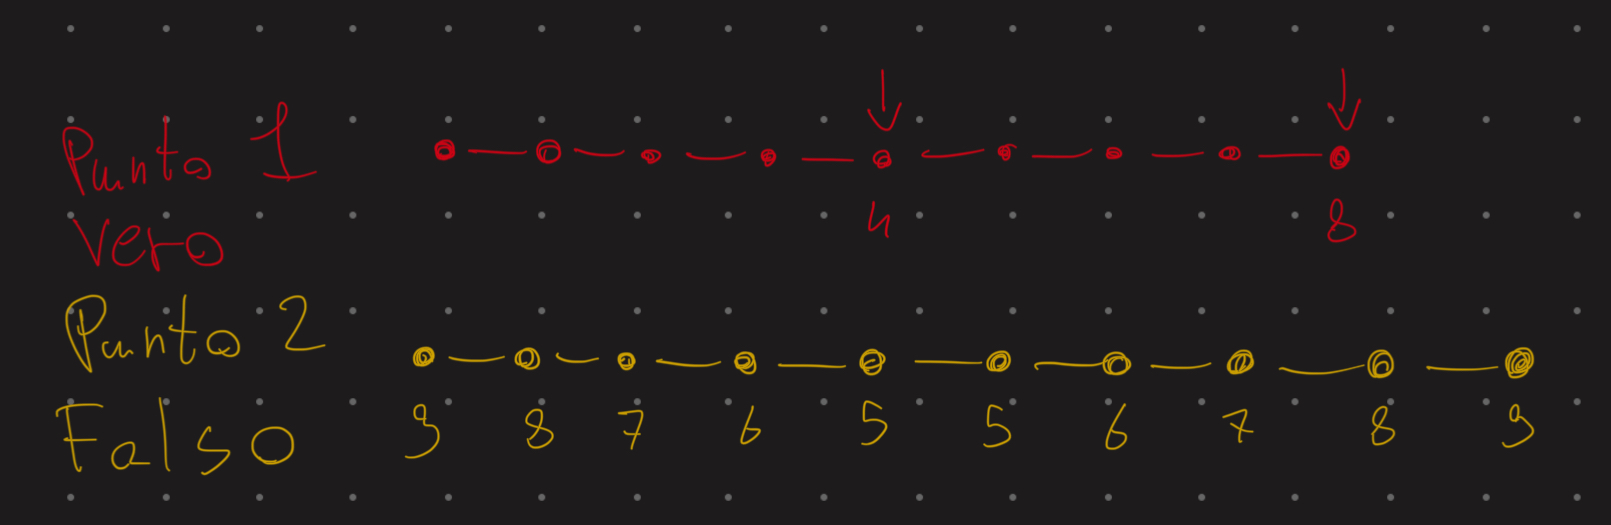 Punto 1
Vero
4 8
Punto 2
Falso
9 8 7 6 5 5 6 7 8 9